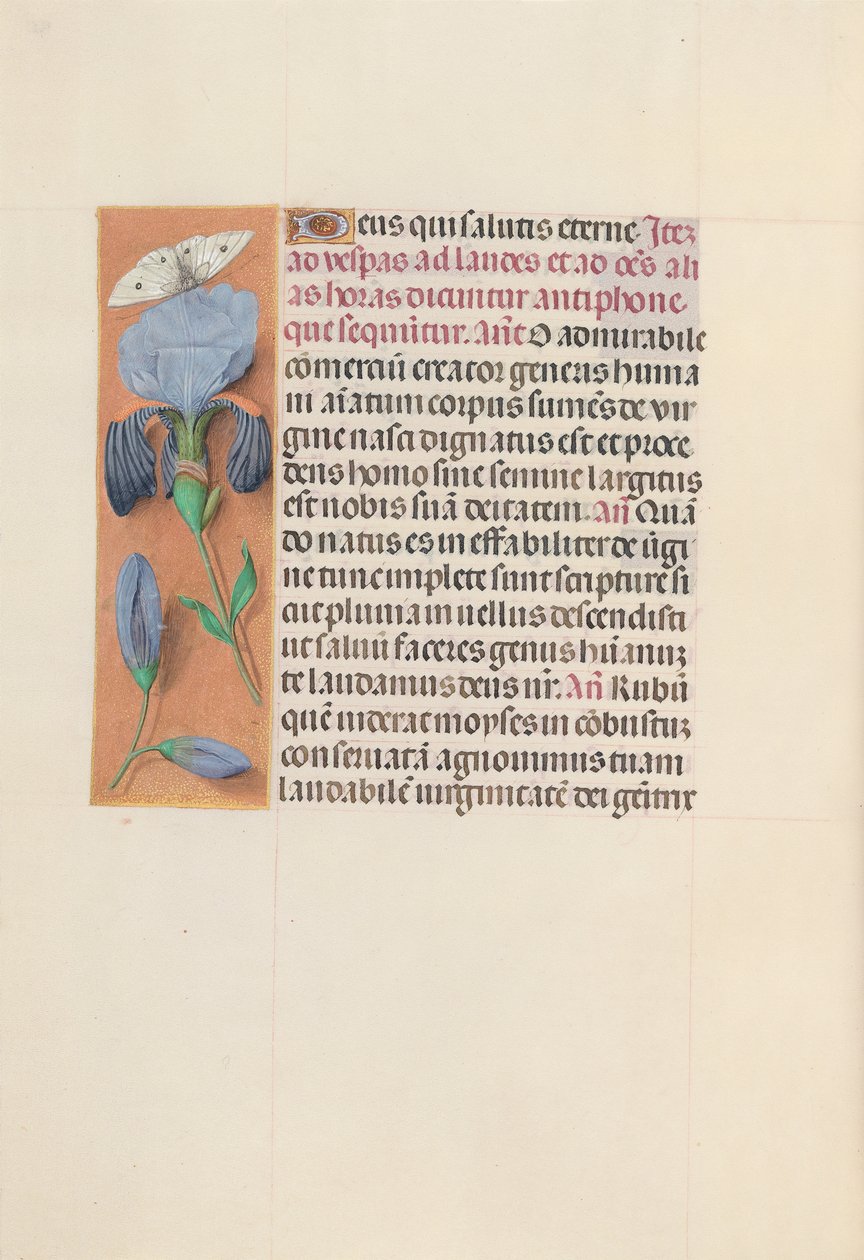 Deus qui salutis eterne. Itez
ad vespas ad laudes et ad oēs ali
as horas dicuntur antiphone
que sequūtur. Añt O admirabile
cōmerciū creator generis huma
ni aīatum corpus sumēs de vir
gine nasci dignatus est et proce
dens homo sine semine largitus
est nobis suā deitatem. Añ Quā
do natus es ineffabiliter de ūgi
ne tunc implete sunt scripture si
cut pluuia in uellus descendisti
ut saluū faceres genus hūanuz
te laudamus deus nr̄. Añ Rubū
quē uiderat moyses incōbustuz
conseruatā agnouimus tuam
laudabilē uirginitatē dei gēitrix